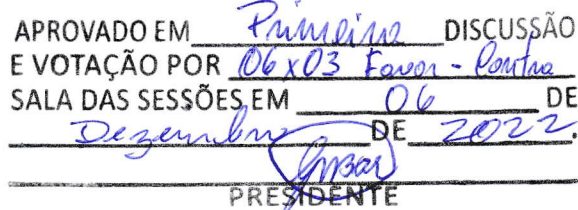 APROVADO EM Primeira DISCUSSÃO
E VOTAÇÃO POR 06x03 Favor - Contra
SALA DAS SESSÕES EM 06 DE
Dezembro DE 2022.
PRESIDENTE